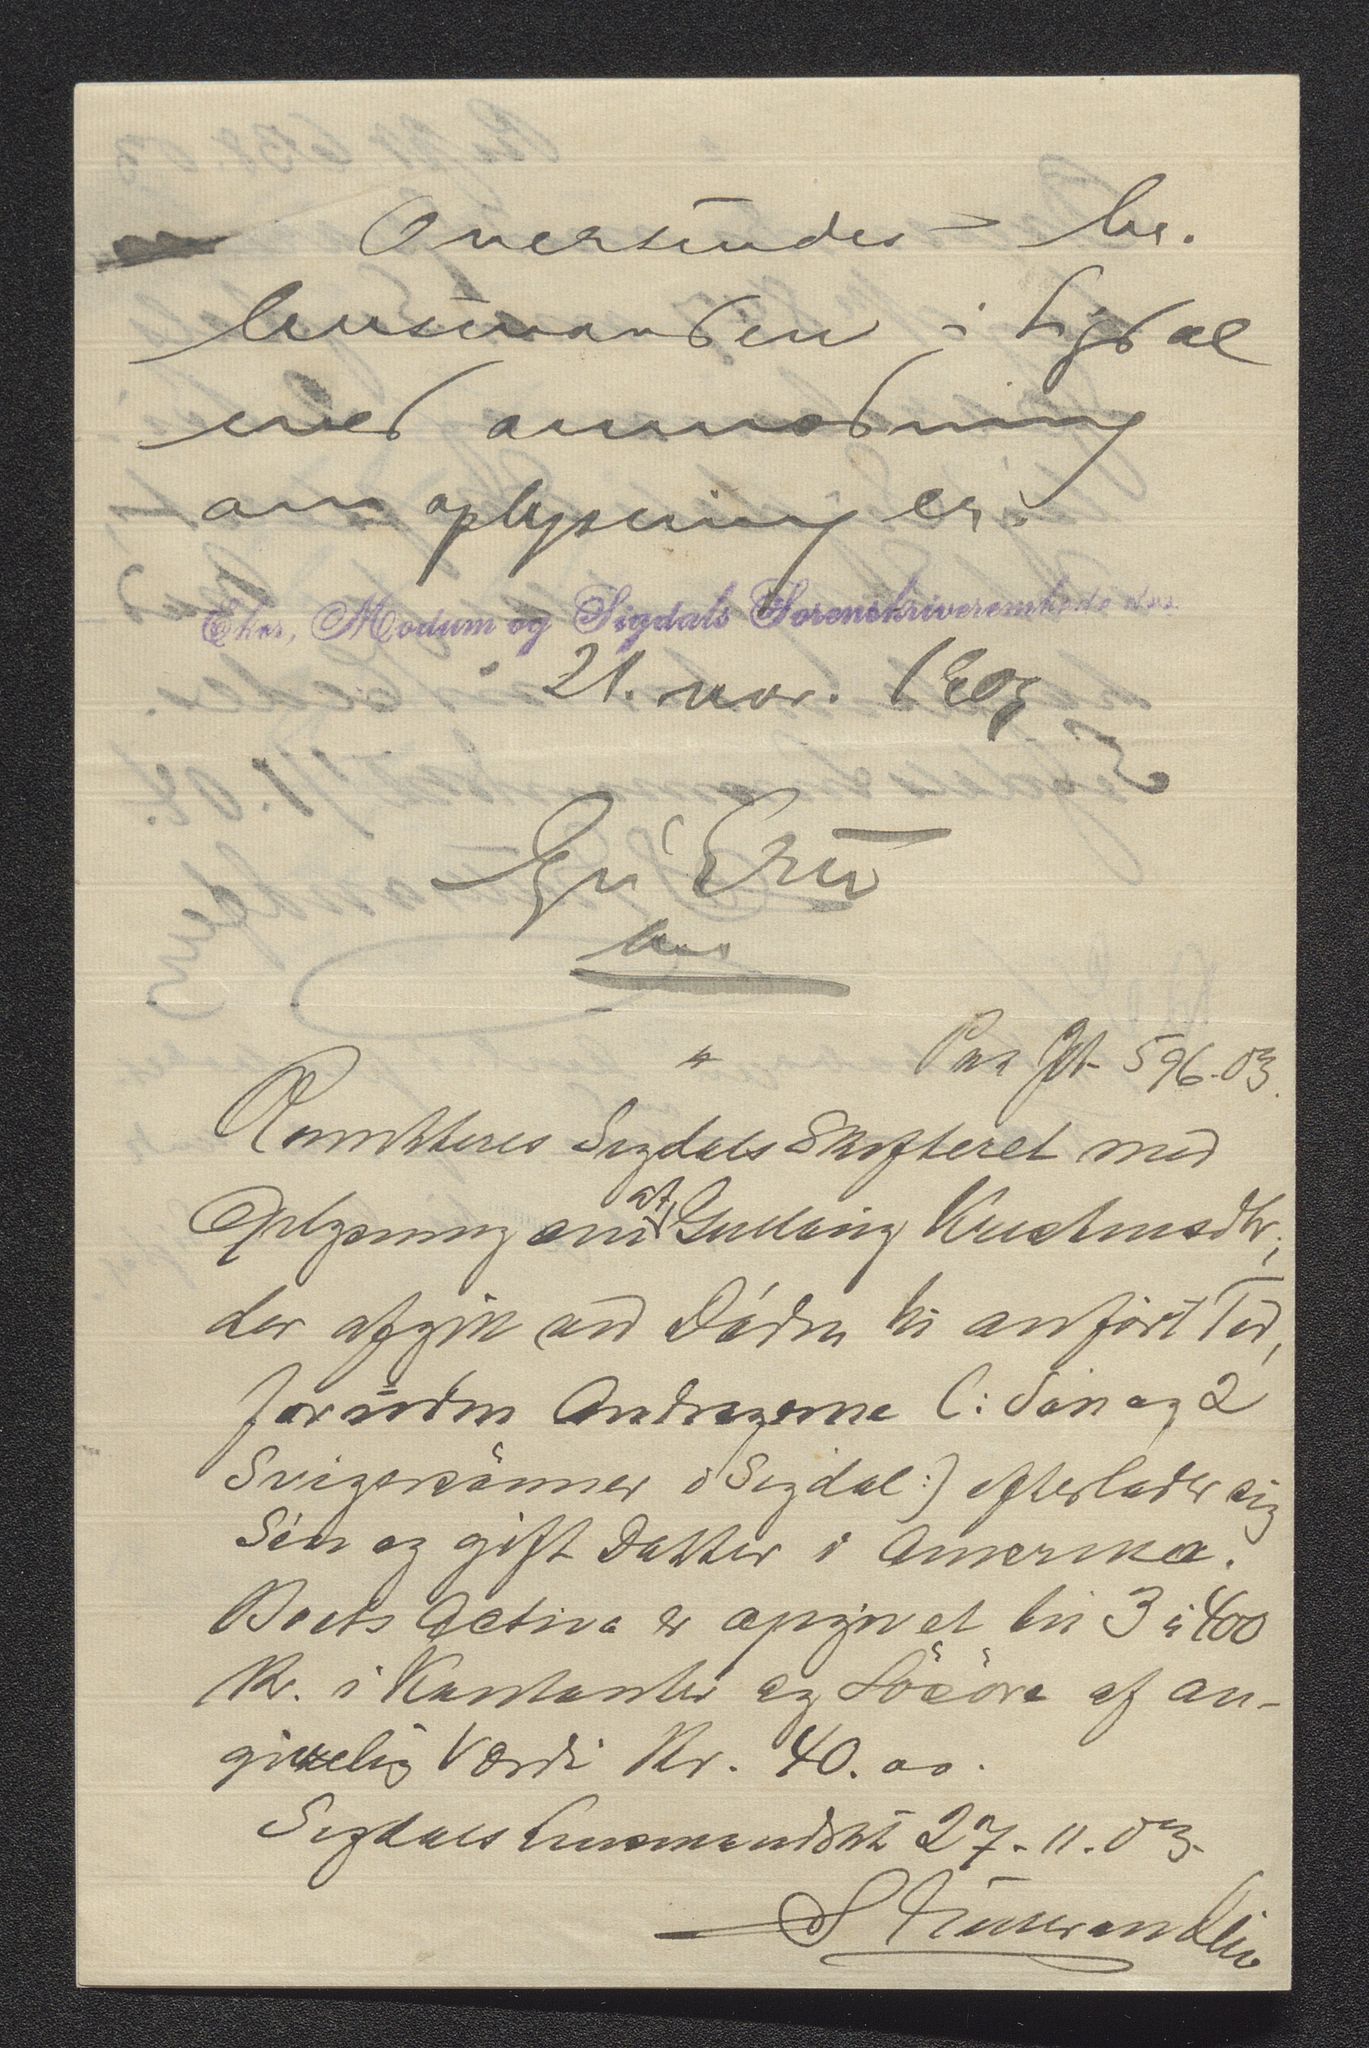 Oversendes hr.
lensmanden i Sigdal
med anmodning
om oplysninger.
Eker, Modum og Sigdals Sorenskriverembede den
21. nov. 1903
Pas Jr. 596.03.
Remitteres Sigdals Skifteret med
Oplysning om at Gulbiør
der afgik ved Døden til anført Tid,
foruden Andragerne (: Søn og 2
Svigersønner i Sigdal :) efterlader sig
Søn og gift Datter i Amerika.
Boets Activa er opgivet til 3 à 400
Kr. i Kontanter og Løsøre af an-
givelig Værdi Kr. 40.00.
Sigdals Lensmandsbst 27-11-03.